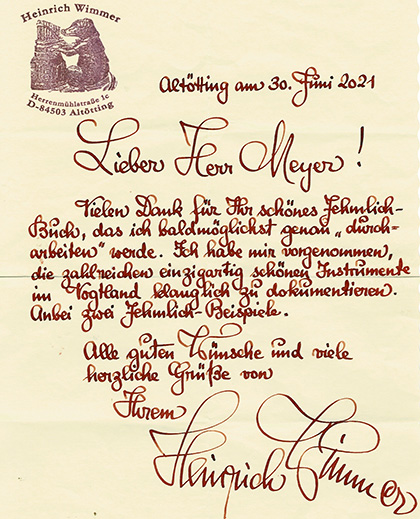 Heinrich Wimmer
Herrenmühlstraße 1c
D-84503 Altötting
Altötting am 30. Juni 2021
Lieber Herr Meyer!
Vielen Dank für Ihr schönes Jehmlich-
Buch, das ich baldmöglichst genau „durch-
arbeiten" werde. Ich habe mir vorgenommen,
die zahlreichen einzigartig schönen Instrumente
im Vogtland klanglich zu dokumentieren.
Anbei zwei Jehmlich-Beispiele.
Alle guten Wünsche und viele
herzliche Grüße von
Ihrem
Heinrich Wimmer